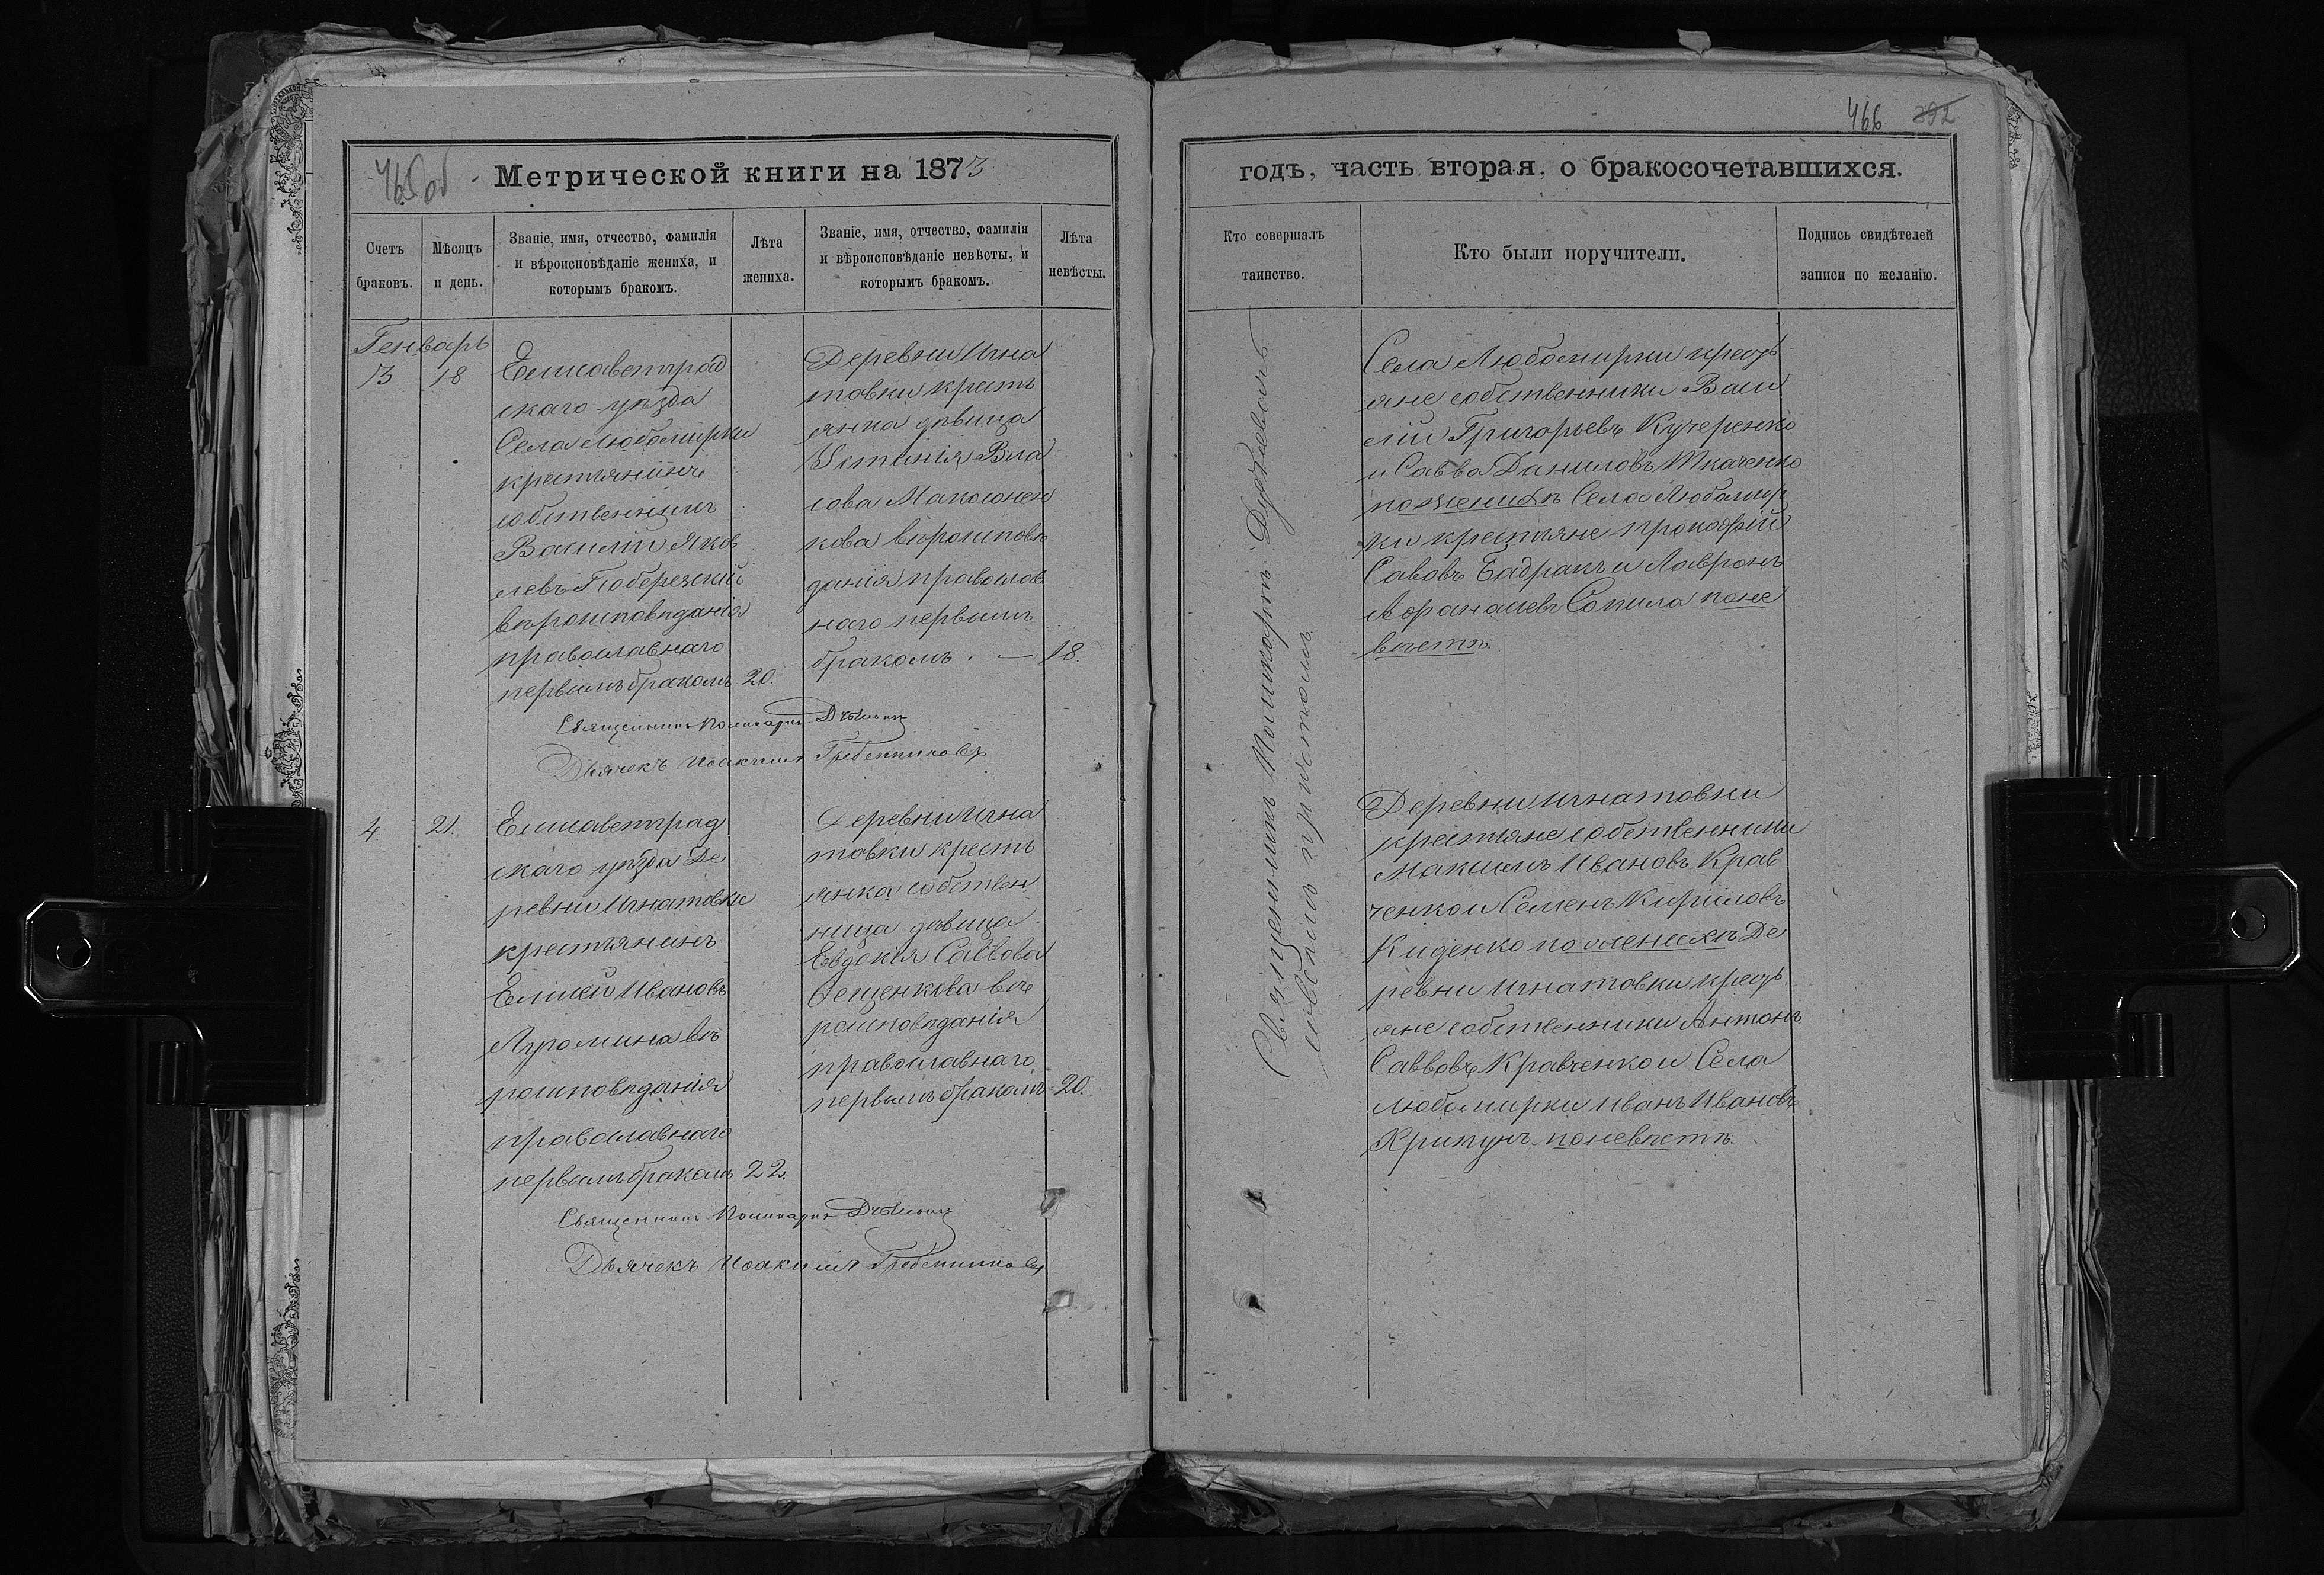 465 об
Метрической книги на 1873
Счетъ браковъ.
Мѣсяцъ и день.
Званіе, имя, отчество, фамилія
и вѣроисповѣданіе жениха, и
которымъ бракомъ.
Лѣта жениха.
Званіе, имя, отчество, фамилія
и вѣроисповѣданіе невѣсты, и
которымъ бракомъ.
Лѣта невѣсты.
Генварь
3
18
Елисаветград
скаго уѣзда
Села Любомирки
крестьянинъ
собственникъ
Василій Яков
левъ Поберезкій
вѣроисповѣданія
православнаго
первымъ бракомъ
20.
Деревни Игна
товки кресть
янка дѣвица
Устинія Вла
сова
кова вѣроисповѣ
данія православ
наго первымъ
бракомъ. —
18.
Священникъ Поликарпъ
Дьячекъ Иоакимъ Гребенниковъ
4.
21.
Елисаветград
скаго уѣзда Де
ревни Игнатовки
крестьянинъ
Елисей Ивановъ
вѣ
роисповѣданія
православнаго
первымъ бракомъ
22.
Деревни Игна
товки кресть
янка собствен
ница дѣвица
Евдокія Саввова
вѣ
роисповѣданія
православнаго
первымъ бракомъ
20.
Священникъ Поликарпъ
Дьячекъ Иоакимъ Гребенниковъ
466 392
годъ, часть вторая, о бракосочетавшихся.
Кто совершалъ таинство.
Кто были поручители.
Подпись свидѣтелей
записи по желанію.
Священникъ Поликарпъ
съ причтомъ
Села Любомирки крест
яне собственники Васи
лій Григорьевъ Кучеренко
и Савва Даниловъ Ткаченко
по женихѣ Села Любомир
ки крестьяне Прокофій
Савовъ Бадракъ и Лавронъ
Афанасіевъ Сопила по не
вѣстѣ.
Деревни Игнатовки
крестьяне собственники
Максимъ Ивановъ Крав
ченко и Семенъ Кириловъ
Киденко по женихѣ Де
ревни Игнатовки крест
яне собственники Антонъ
Саввовъ Кравченко и Села
Любомирки Иванъ Ивановъ
Крипунъ по невѣстѣ.